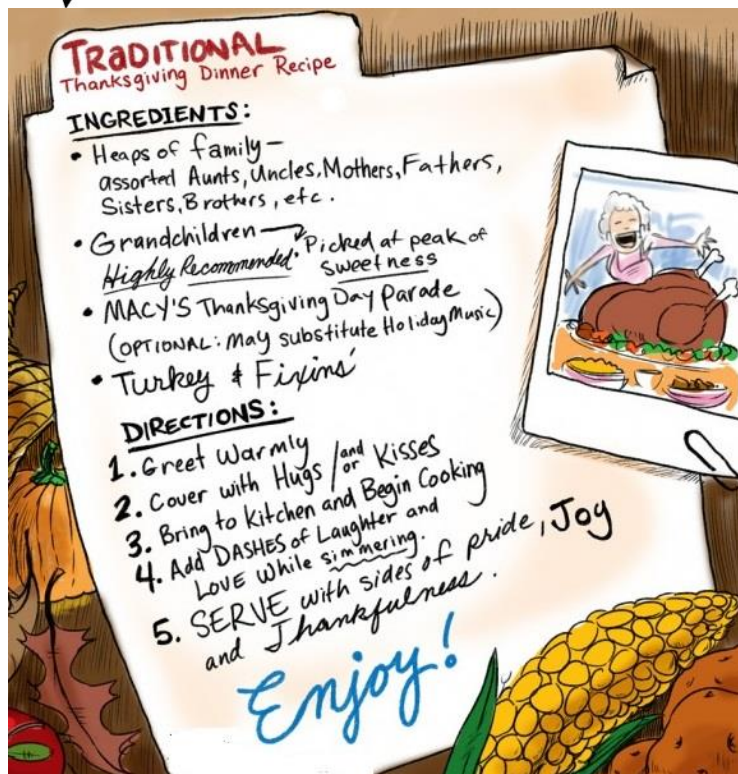 TRADITIONAL
Thanksgiving Dinner Recipe
INGREDIENTS:
• Heaps of family—
assorted Aunts, Uncles, Mothers, Fathers,
Sisters, Brothers, etc.
• Grandchildren → Picked at peak of
Highly Recommended. sweetness
• MACY'S Thanksgiving Day Parade
(OPTIONAL: May substitute Holiday Music)
• Turkey & Fixins'
DIRECTIONS:
1. Greet Warmly
2. Cover with Hugs and/or Kisses
3. Bring to Kitchen and Begin Cooking
4. Add DASHES of Laughter and
LOVE While simmering.
5. SERVE with sides of pride, Joy
and Thankfulness.
Enjoy!